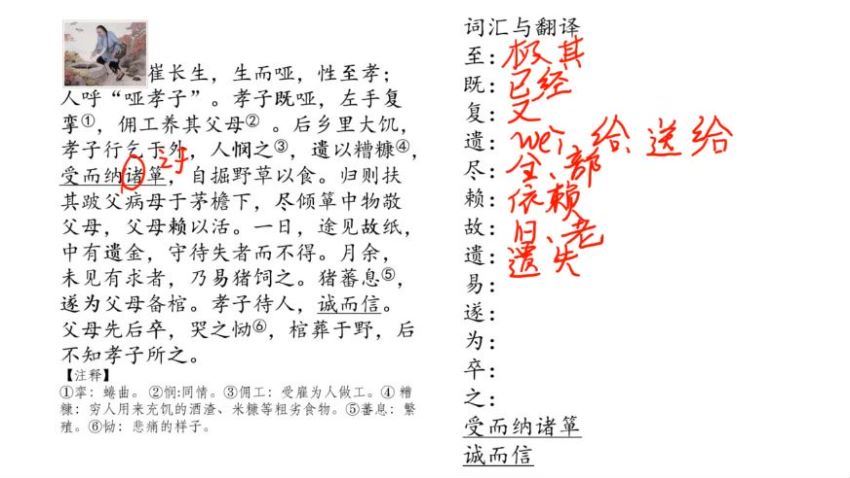 崔长生，生而哑，性至孝；
人呼“哑孝子”。孝子既哑，左手复
挛①，佣工养其父母②。后乡里大饥，
孝子行乞于外，人悯之③，遗以糟糠④，
之于
受而纳诸箪，自掘野草以食。归则扶
其跛父病母于茅檐下，尽倾箪中物敬
父母，父母赖以活。一日，途见故纸，
中有遗金，守待失者而不得。月余，
未见有求者，乃易猪饲之。猪蕃息⑤，
遂为父母备棺。孝子待人，诚而信。
父母先后卒，哭之恸⑥，棺葬于野，后
不知孝子所之。
【注释】
①挛：蜷曲。②悯:同情。③佣工：受雇为人做工。④糟
糠：穷人用来充饥的酒渣、米糠等粗劣食物。⑤蕃息：繁
殖。⑥恸：悲痛的样子。
词汇与翻译
至：极其
既：已经
复：又
遗：wèi，给、送给
尽：全、部
赖：依赖
故：旧、老
遗：遗失
易：
遂：
为：
卒：
之：
受而纳诸箪
诚而信